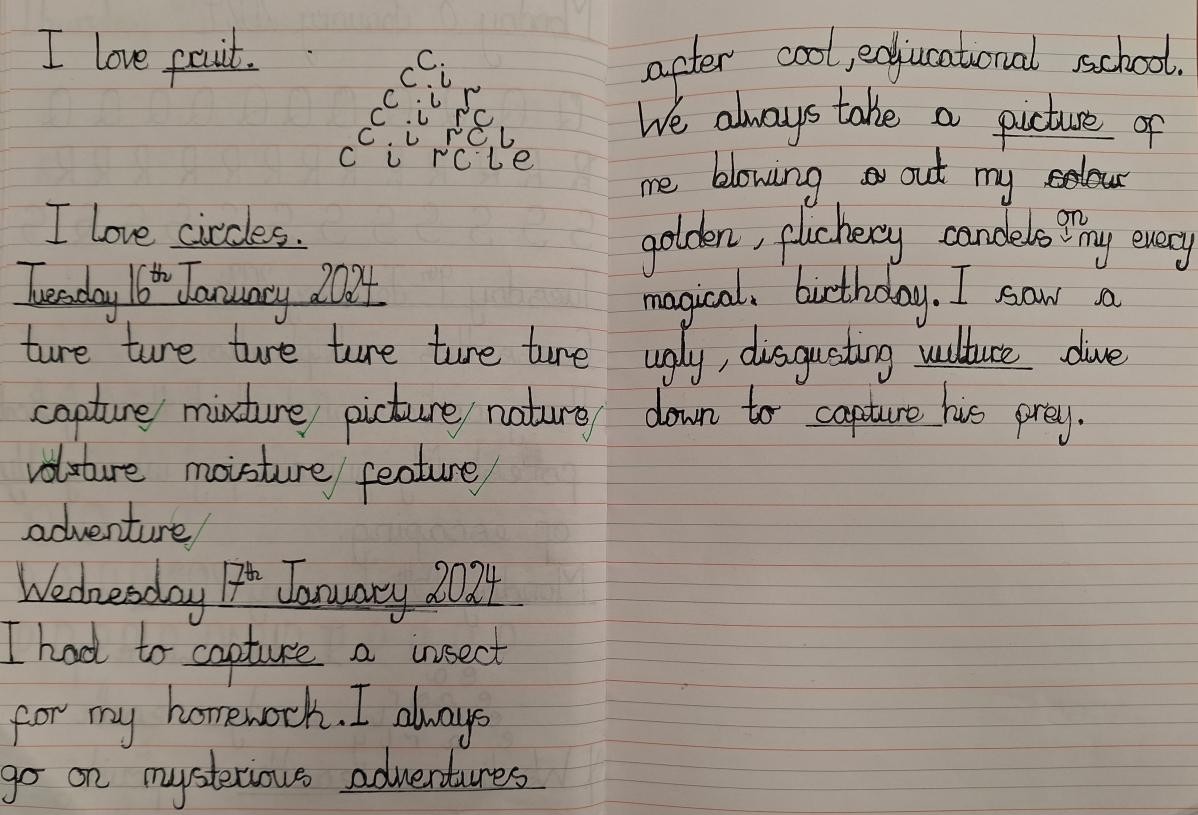 I love fruit.
c.
c i
c i r
c i r c
c i r c l
c i r c l e
I love circles.
Tuesday 16th January 2024
ture ture ture ture ture ture
capture mixture picture nature
vulture moisture feature
adventure
Wednesday 17th January 2024
I had to capture a insect
for my homework. I always
go on mysterious adventures
after cool, edjucational school.
We always take a picture of
me blowing a out my colour
golden, flickery candels on my every
magical. birthday. I saw a
ugly, disgusting vulture dive
down to capture his prey.